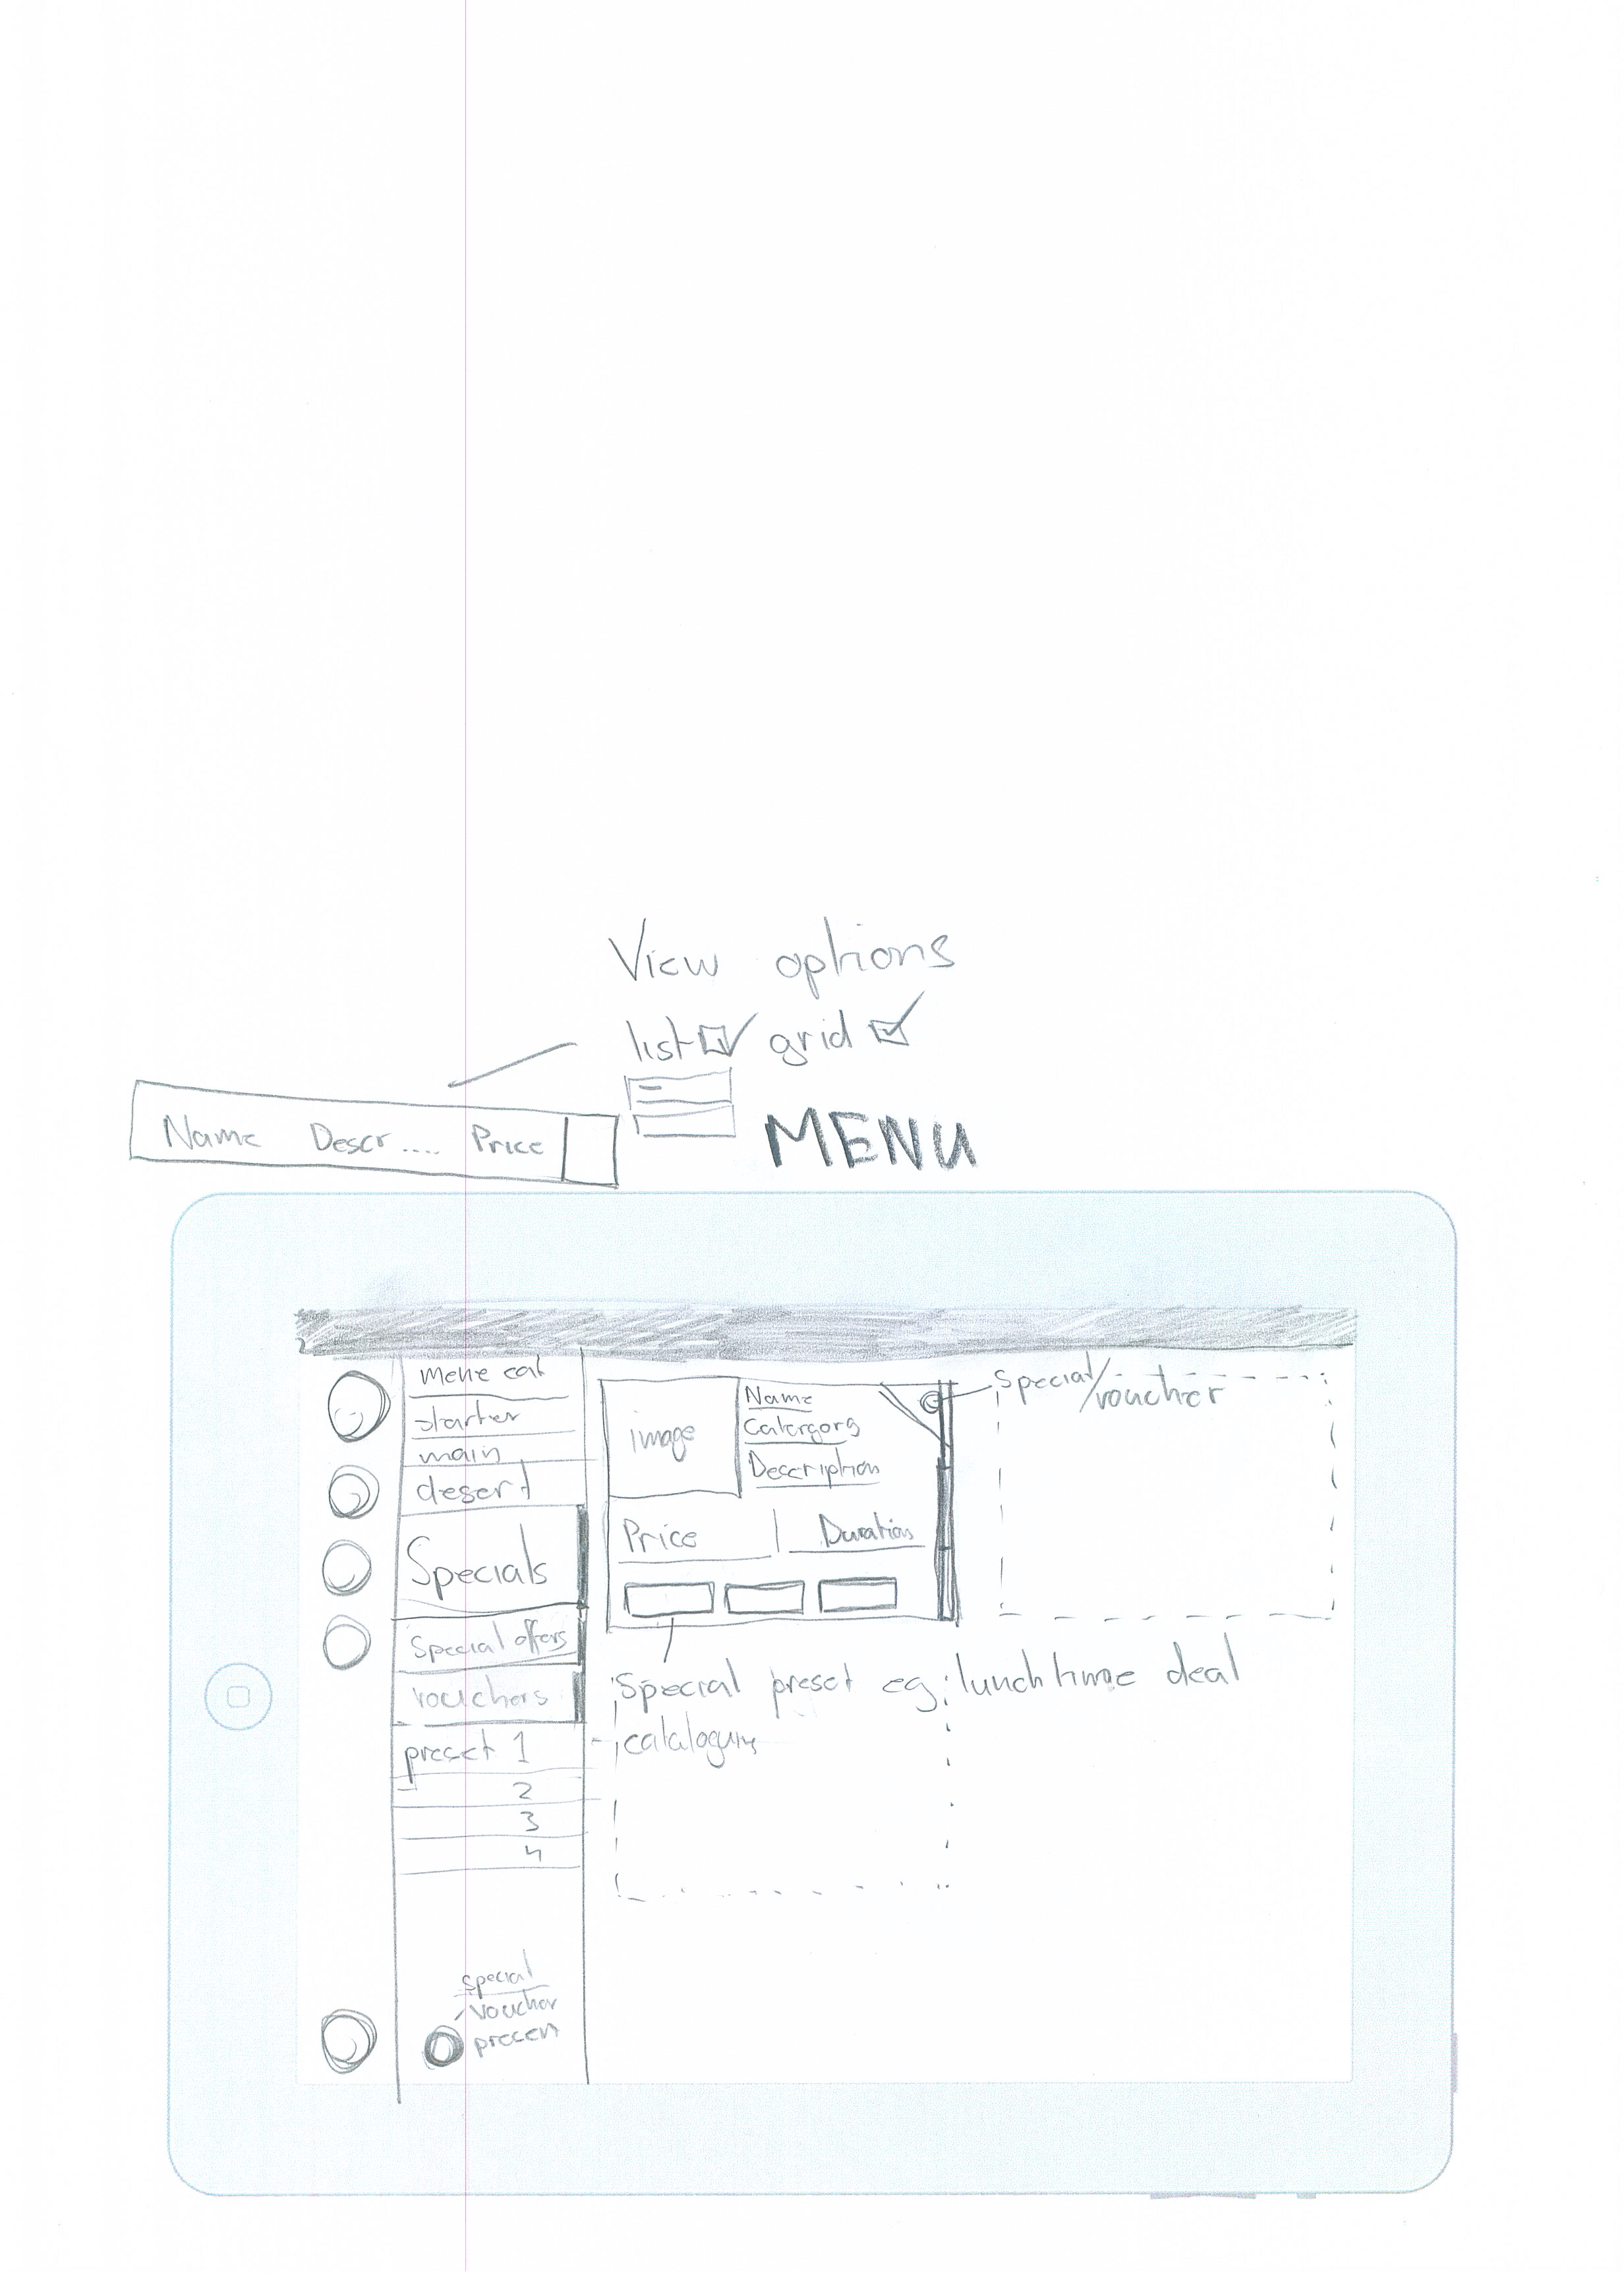 View options
list grid
Name Descr .... Price
MENU
menu cat
starter
main
desert
Specials
Special offers
vouchers
preset 1
2
3
4
special
voucher
presen
image
Name
Catergory
Description
Price
Duration
special/voucher
Special preset eg: lunch time deal